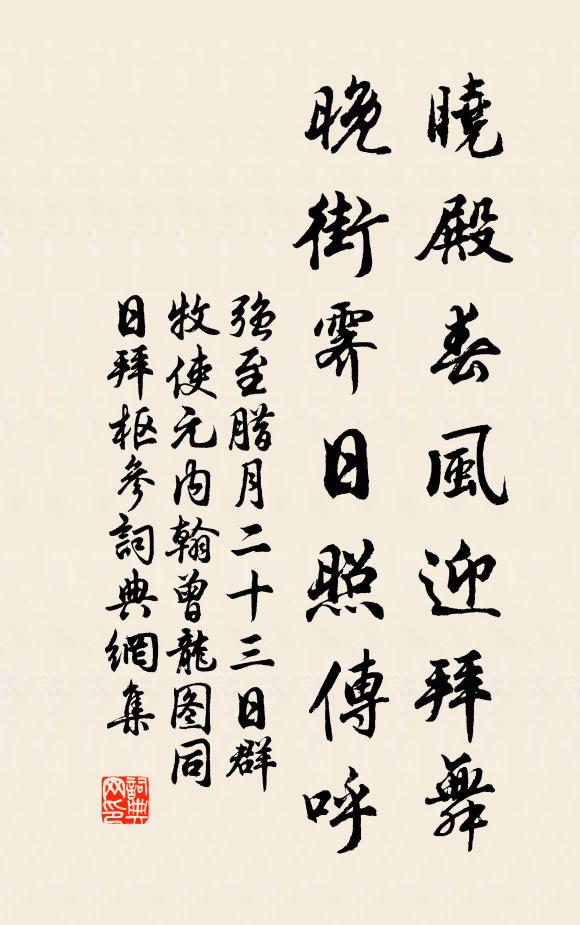 曉殿春風迎拜舞
晚街霽日照傳呼
強至腊月二十三日群
牧使元内翰曾龍图同
日拜枢參詞典網集
詞典网印